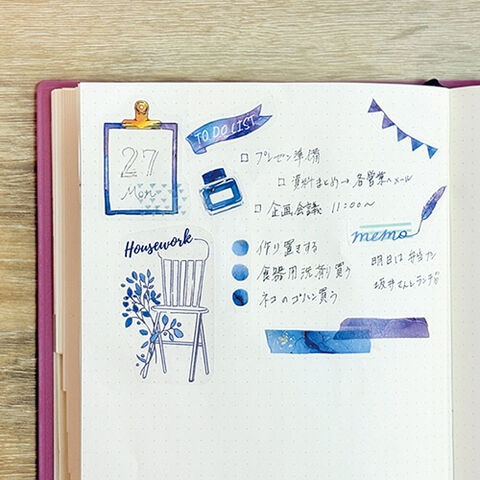 27
Mon
TO DO LIST
□ プレゼン準備
□ 資料まとめ→各営業へメール
□ 企画会議 11:00〜
Housework
作り置きする
食器用洗剤買う
ネコのゴハン買う
memo
明日は弁当ナシ
坂井さんとランチ